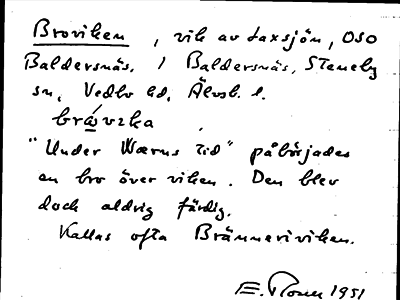 Broviken, vik av Laxsjön, OSO
Baldersnäs. / Baldersnäs, Steneby
sn, Vedbo hd, Älvsb. l.
"Under Wærns tid" påbörjades
en bro över viken. Den blev
dock aldrig färdig.
Kallas ofta Bränneriviken.
E. 1951